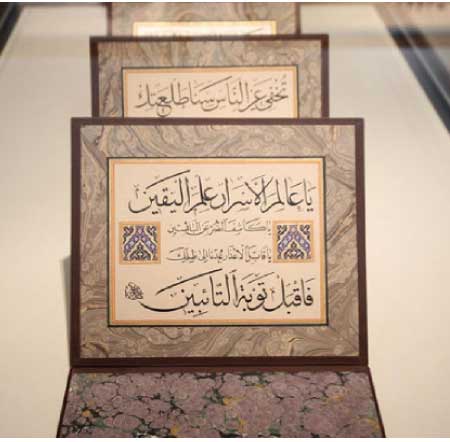 تخفي عن الناس سنا طلعتك
يا عالم الأسرار علم اليقين
يا كاشف الضر عن البائسين
يا قابل الأعذار عدنا إلى ظلك
فاقبل توبة التائبين